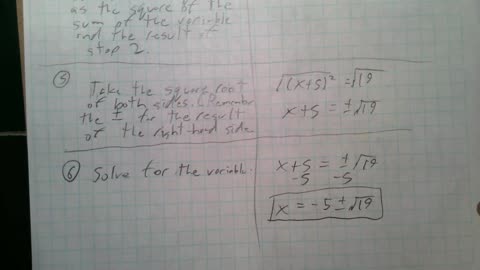 as the square of the
sum of the variable
and the result of
step 2.
⑤ Take the square root
of both sides. (Remember
the ± for the result
of the right-hand side
√(x+5)² = √19
x+5 = ±√19
⑥ Solve for the variable.
x+5 = ±√19
-5 -5
x = -5 ± √19